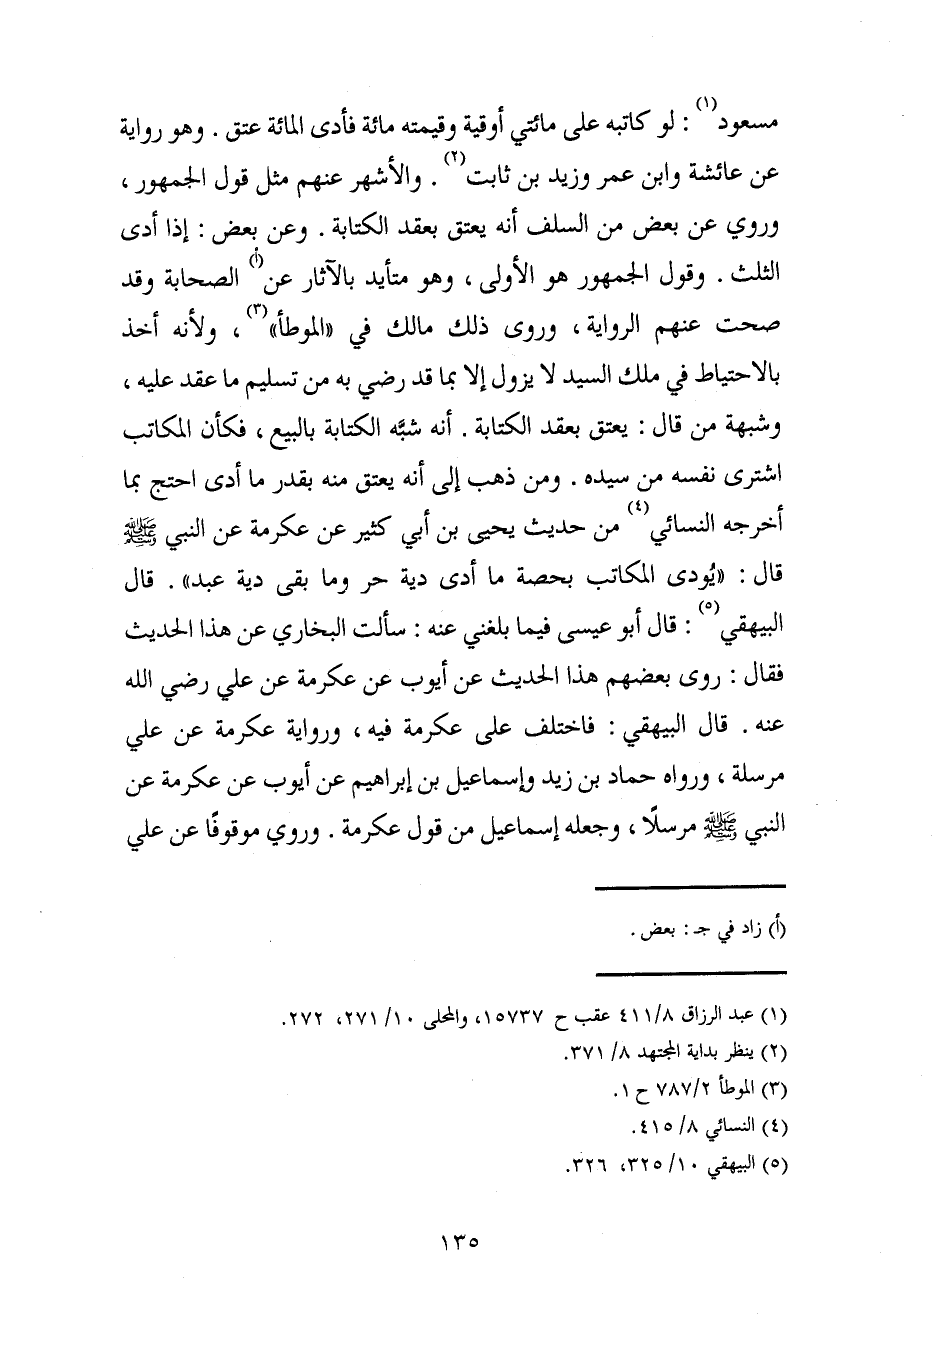 مسعود(١) : لو كاتبه على مائتي أوقية وقيمته مائة فأدى المائة عتق . وهو رواية
عن عائشة وابن عمر وزيد بن ثابت(٢) . والأشهر عنهم مثل قول الجمهور ،
وروي عن بعض من السلف أنه يعتق بعقد الكتابة . وعن بعض : إذا أدى
الثلث . وقول الجمهور هو الأولى ، وهو متأيد بالآثار عن(أ) الصحابة وقد
صحت عنهم الرواية ، وروى ذلك مالك في «الموطأ»(٣) ، ولأنه أخذ
بالاحتياط في ملك السيد لا يزول إلا بما قد رضي به من تسليم ما عقد عليه ،
وشبهة من قال : يعتق بعقد الكتابة . أنه شبَّه الكتابة بالبيع ، فكأن المكاتب
اشترى نفسه من سيده . ومن ذهب إلى أنه يعتق منه بقدر ما أدى احتج بما
أخرجه النسائي(٤) من حديث يحيى بن أبي كثير عن عكرمة عن النبي ﷺ
قال : «يُودى المكاتب بحصة ما أدى دية حر وما بقى دية عبد» . قال
البيهقي(٥) : قال أبو عيسى فيما بلغني عنه : سألت البخاري عن هذا الحديث
فقال : روى بعضهم هذا الحديث عن أيوب عن عكرمة عن علي رضي الله
عنه . قال البيهقي : فاختلف على عكرمة فيه ، ورواية عكرمة عن علي
مرسلة ، ورواه حماد بن زيد وإسماعيل بن إبراهيم عن أيوب عن عكرمة عن
النبي ﷺ مرسلًا ، وجعله إسماعيل من قول عكرمة . وروي موقوفًا عن علي
(أ) زاد في جـ : بعض .
(١) عبد الرزاق ٨/ ٤١١ عقب ح ١٥٧٣٧، والمحلى ١٠/ ٢٧١، ٢٧٢.
(٢) ينظر بداية المجتهد ٨/ ٣٧١.
(٣) الموطأ ٢/ ٧٨٧ ح ١.
(٤) النسائي ٨/ ٤١٥.
(٥) البيهقي ١٠/ ٣٢٥، ٣٢٦.
١٣٥